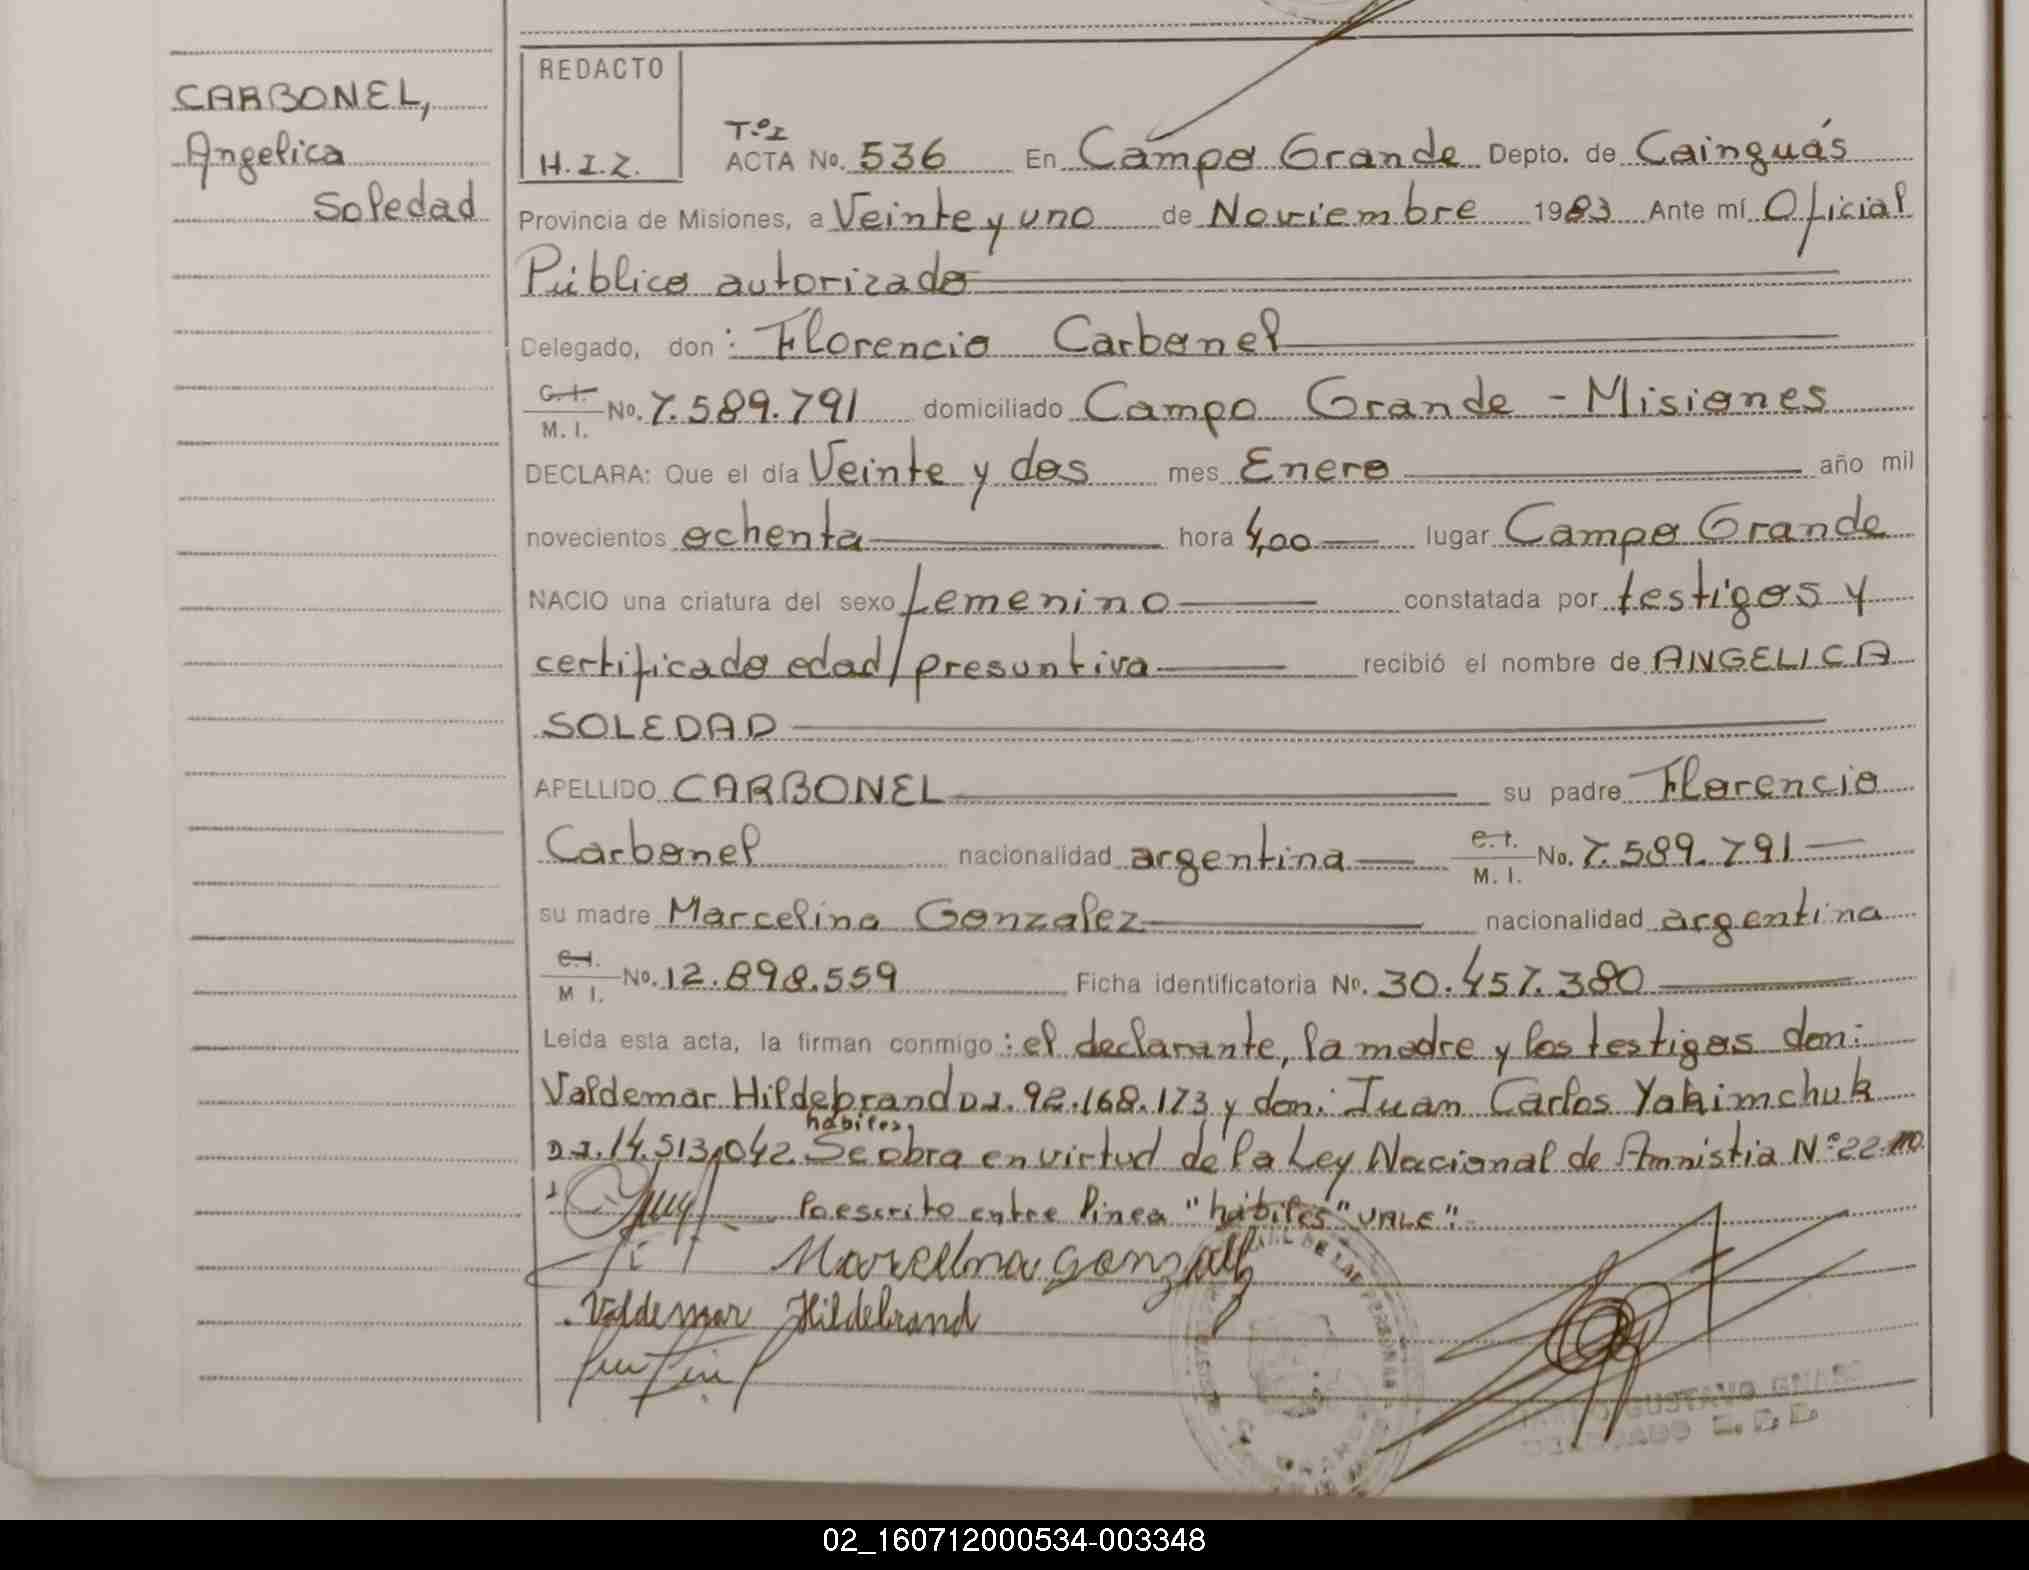 CARBONEL,
Angelica
Soledad
REDACTO
H.I.Z.
Tº I
ACTA No. 536 En Campo Grande Depto. de Cainguás
Provincia de Misiones, a Veinte y uno de Noviembre 1983 Ante mí Oficial
Público autorizado
Delegado, don: Florencio Carbonel
C.I.
M. I. No. 7.589.791 domiciliado Campo Grande - Misiones
DECLARA: Que el día Veinte y dos mes Enero año mil
novecientos ochenta hora 4,00 lugar Campo Grande
NACIO una criatura del sexo femenino constatada por testigos y
certificado edad/presuntiva recibió el nombre de ANGELICA
SOLEDAD
APELLIDO CARBONEL su padre Florencio
Carbonel nacionalidad argentina C.I. M. I. No. 7.589.791
su madre Marcelina Gonzalez nacionalidad argentina
C.I.
M I. No. 12.898.559 Ficha identificatoria No. 30.457.380
Leída esta acta, la firman conmigo: el declarante, la madre y los testigos don:
Valdemar Hildebrand D.I. 92.168.173 y don: Juan Carlos Yakimchuk
hábiles,
D.I. 14.513.042. Se obra en virtud de la Ley Nacional de Amnistia Nº 22.
Lo escrito entre línea "hábiles" VALE".
Marcelina Gonzalez
Valdemar Hildebrand
02_160712000534-003348